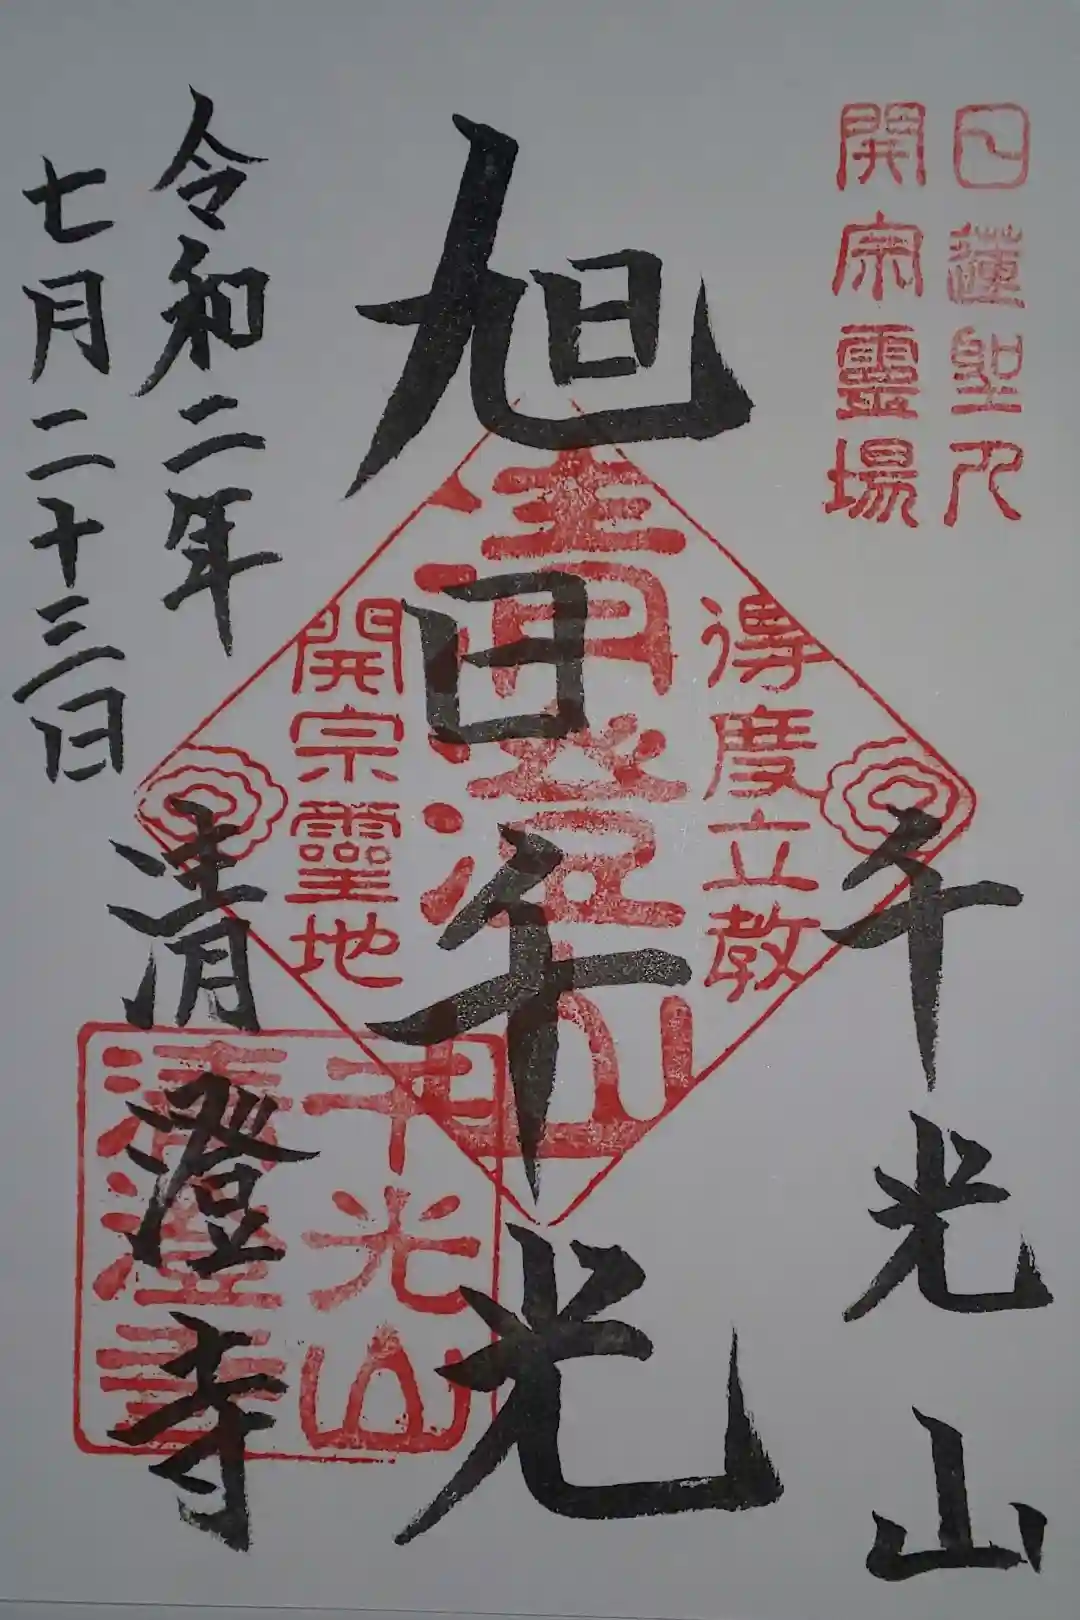 日蓮聖人
開宗霊場
千光山
旭日千光
得度立教
清澄山
開宗霊地
千光山
清澄寺
清澄寺
令和二年
七月二十三日